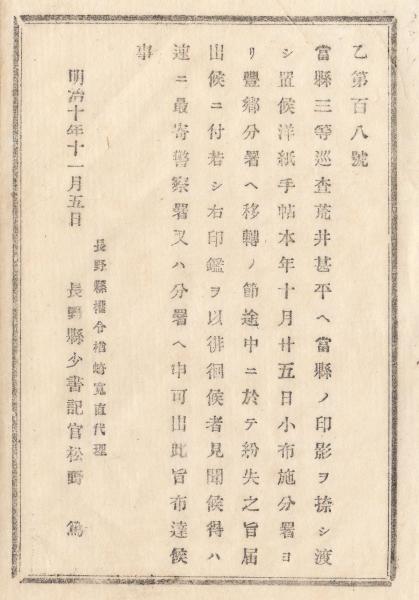 乙第百八號
當縣三等巡査荒井甚平ヘ當縣ノ印影ヲ捺シ渡
シ置候洋紙手帖本年十月廿五日小布施分署ヨ
リ豐郷分署ヘ移轉ノ節途中ニ於テ紛失之旨届
出候ニ付若シ右印鑑ヲ以徘徊候者見聞候得ハ
速ニ最寄警察署又ハ分署ヘ申可出此旨布達候
事
明治十年十一月五日
長野縣權令楢崎寛直代理
長野縣少書記官松野篤